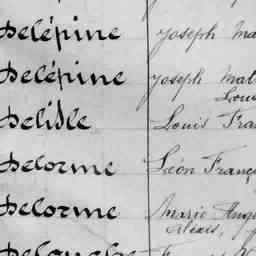 Delépine Joseph Ma
Delépine Joseph Mat
Loui
Delisle Louis Fra
Delorme Léon Franç
Delorme Marie Ang
Alexis,